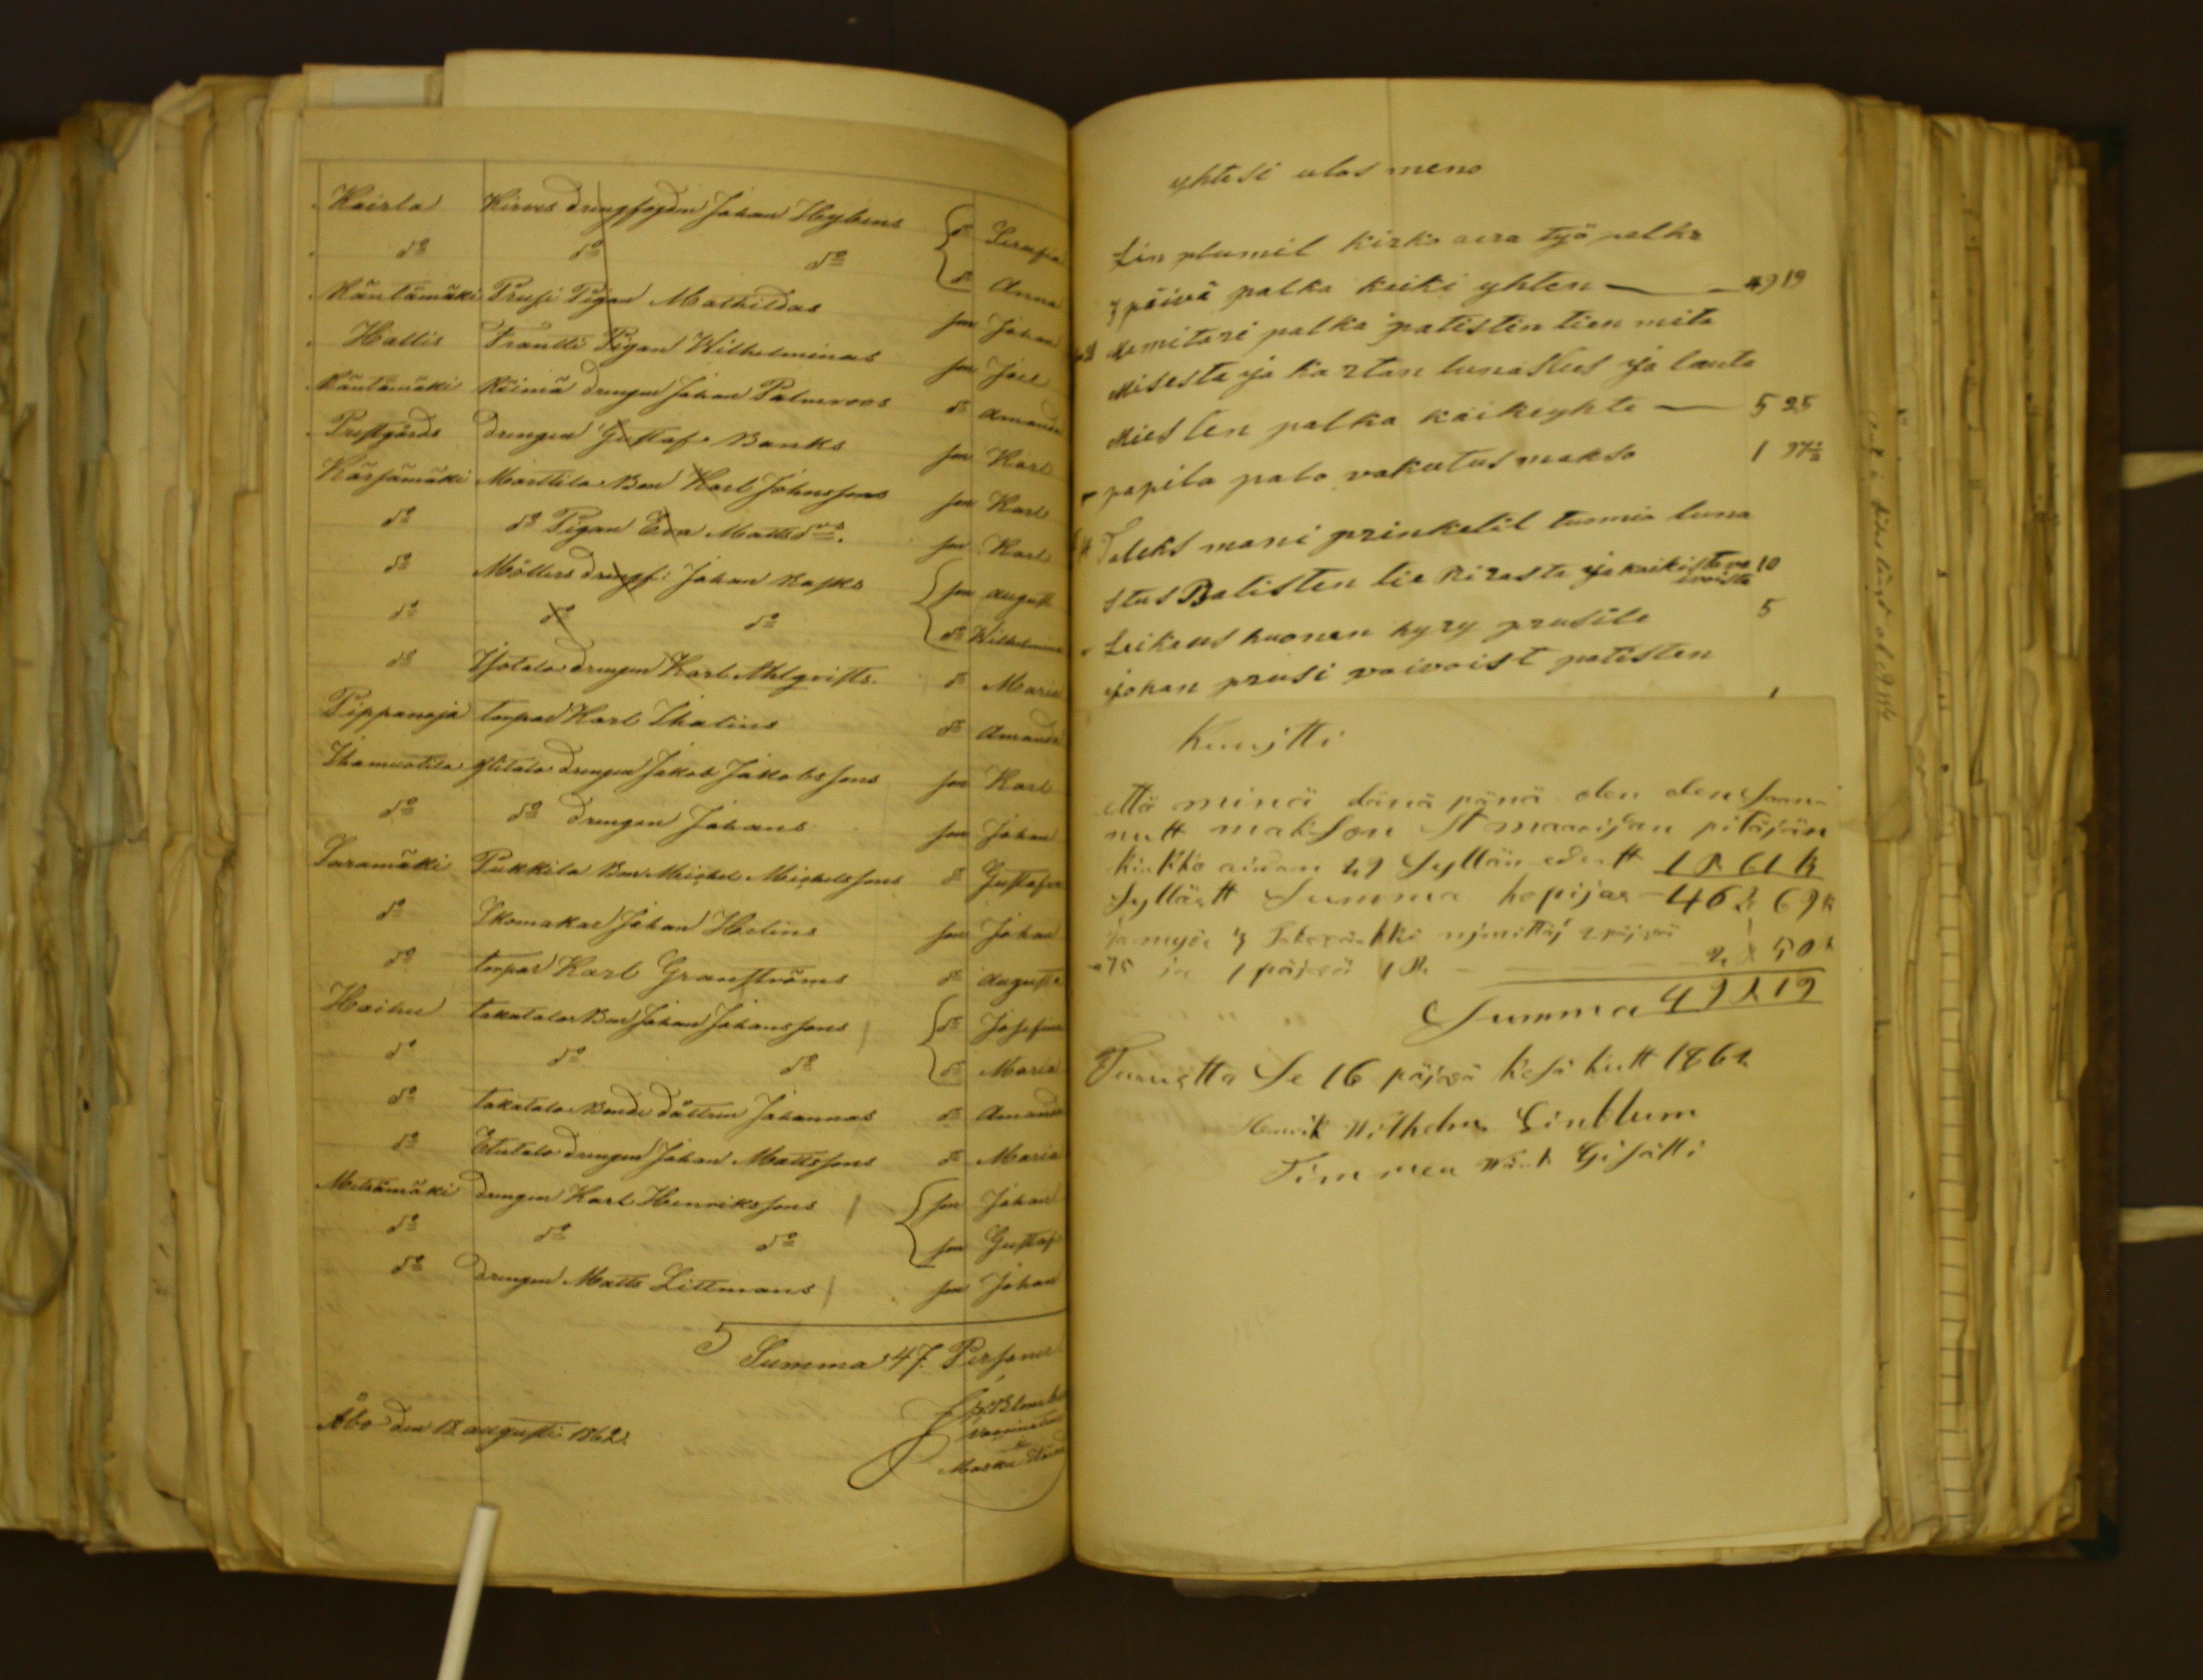 Kairla Kirves drengfogden Johan Nybens do Serafia
do do do do Anna
Räntämäki Prusi Pigan Mathildas son Johan
Hallis Frantti Pigan Wilhelminas son Joel
Räntämäki Räimä drengen Johan Palmroos do Amanda
Prestgårds drengen Gustaf Banks son Karl
Kärsämäki Marttila Bon Karl Johnssons son Karl
do do Pigan Eva Mattsdrs. son Karl
do Möllers drengf: Johan Rasks son August
do do do do Wilhelmina
do Isotalo drengen Karl Ahlqvists. do Maria
Pippanoja torpar Karl Thalins do Amanda
Ihamuotila Ylitalo drengen Jakob Jakobssons son Karl
do do drengen Johans son Johan
Saramäki Pukkila Bon Michel Michelssons do Gustafva
do Skomakar Johan Helins son Johan
do torpar Karl Granströms do Augusta
Haihu takatalo Bon Johan Johanssons do Josefina
do do do do Maria
do takatalo Bonde dåttren Johannas do Amanda
do Etutalo drengen Johan Mattssons do Maria
Metsämäki drengen Karl Henrikssons son Johan
do do do son Gustaf
do drengen Matts Littmans son Johan
Summa 47 Personer
Åbo den 18 augusti 1862.
yhtesi ulos meno
Lin plumil kirko aera työ palka
3 päivä palka kaiki yhten 49 19
mitari palka patistin tien mita
Misesta ja kartan lunastus ja lauta
Miesten palka kaikiyhte 5 25
papila palo vakutus makso 1 97½
mani prinkelil tuomio luna
stus Batisten tie Rirasta ja kaikista va ivoista 10
Leikaus huonen hyry prusile 5
johan prusi vaivoist patisten
1
Kuvjtti
että minä dänä pänä olen olen saanu
nutt makson St maarijan pitäjän
kirkko aidan 29 Syllän edestt 1 R 61 k
Syllästt Summa hopijas 46 R 69 k
ja myös 2 päjvä 2 R 50 k
a 75 ja 1 päjvä 1 R.
Summa 49 R 19
Turustta Se 16 päjvä kesä kutt 1862
Henrik Wilhelm Linblum
Timmer